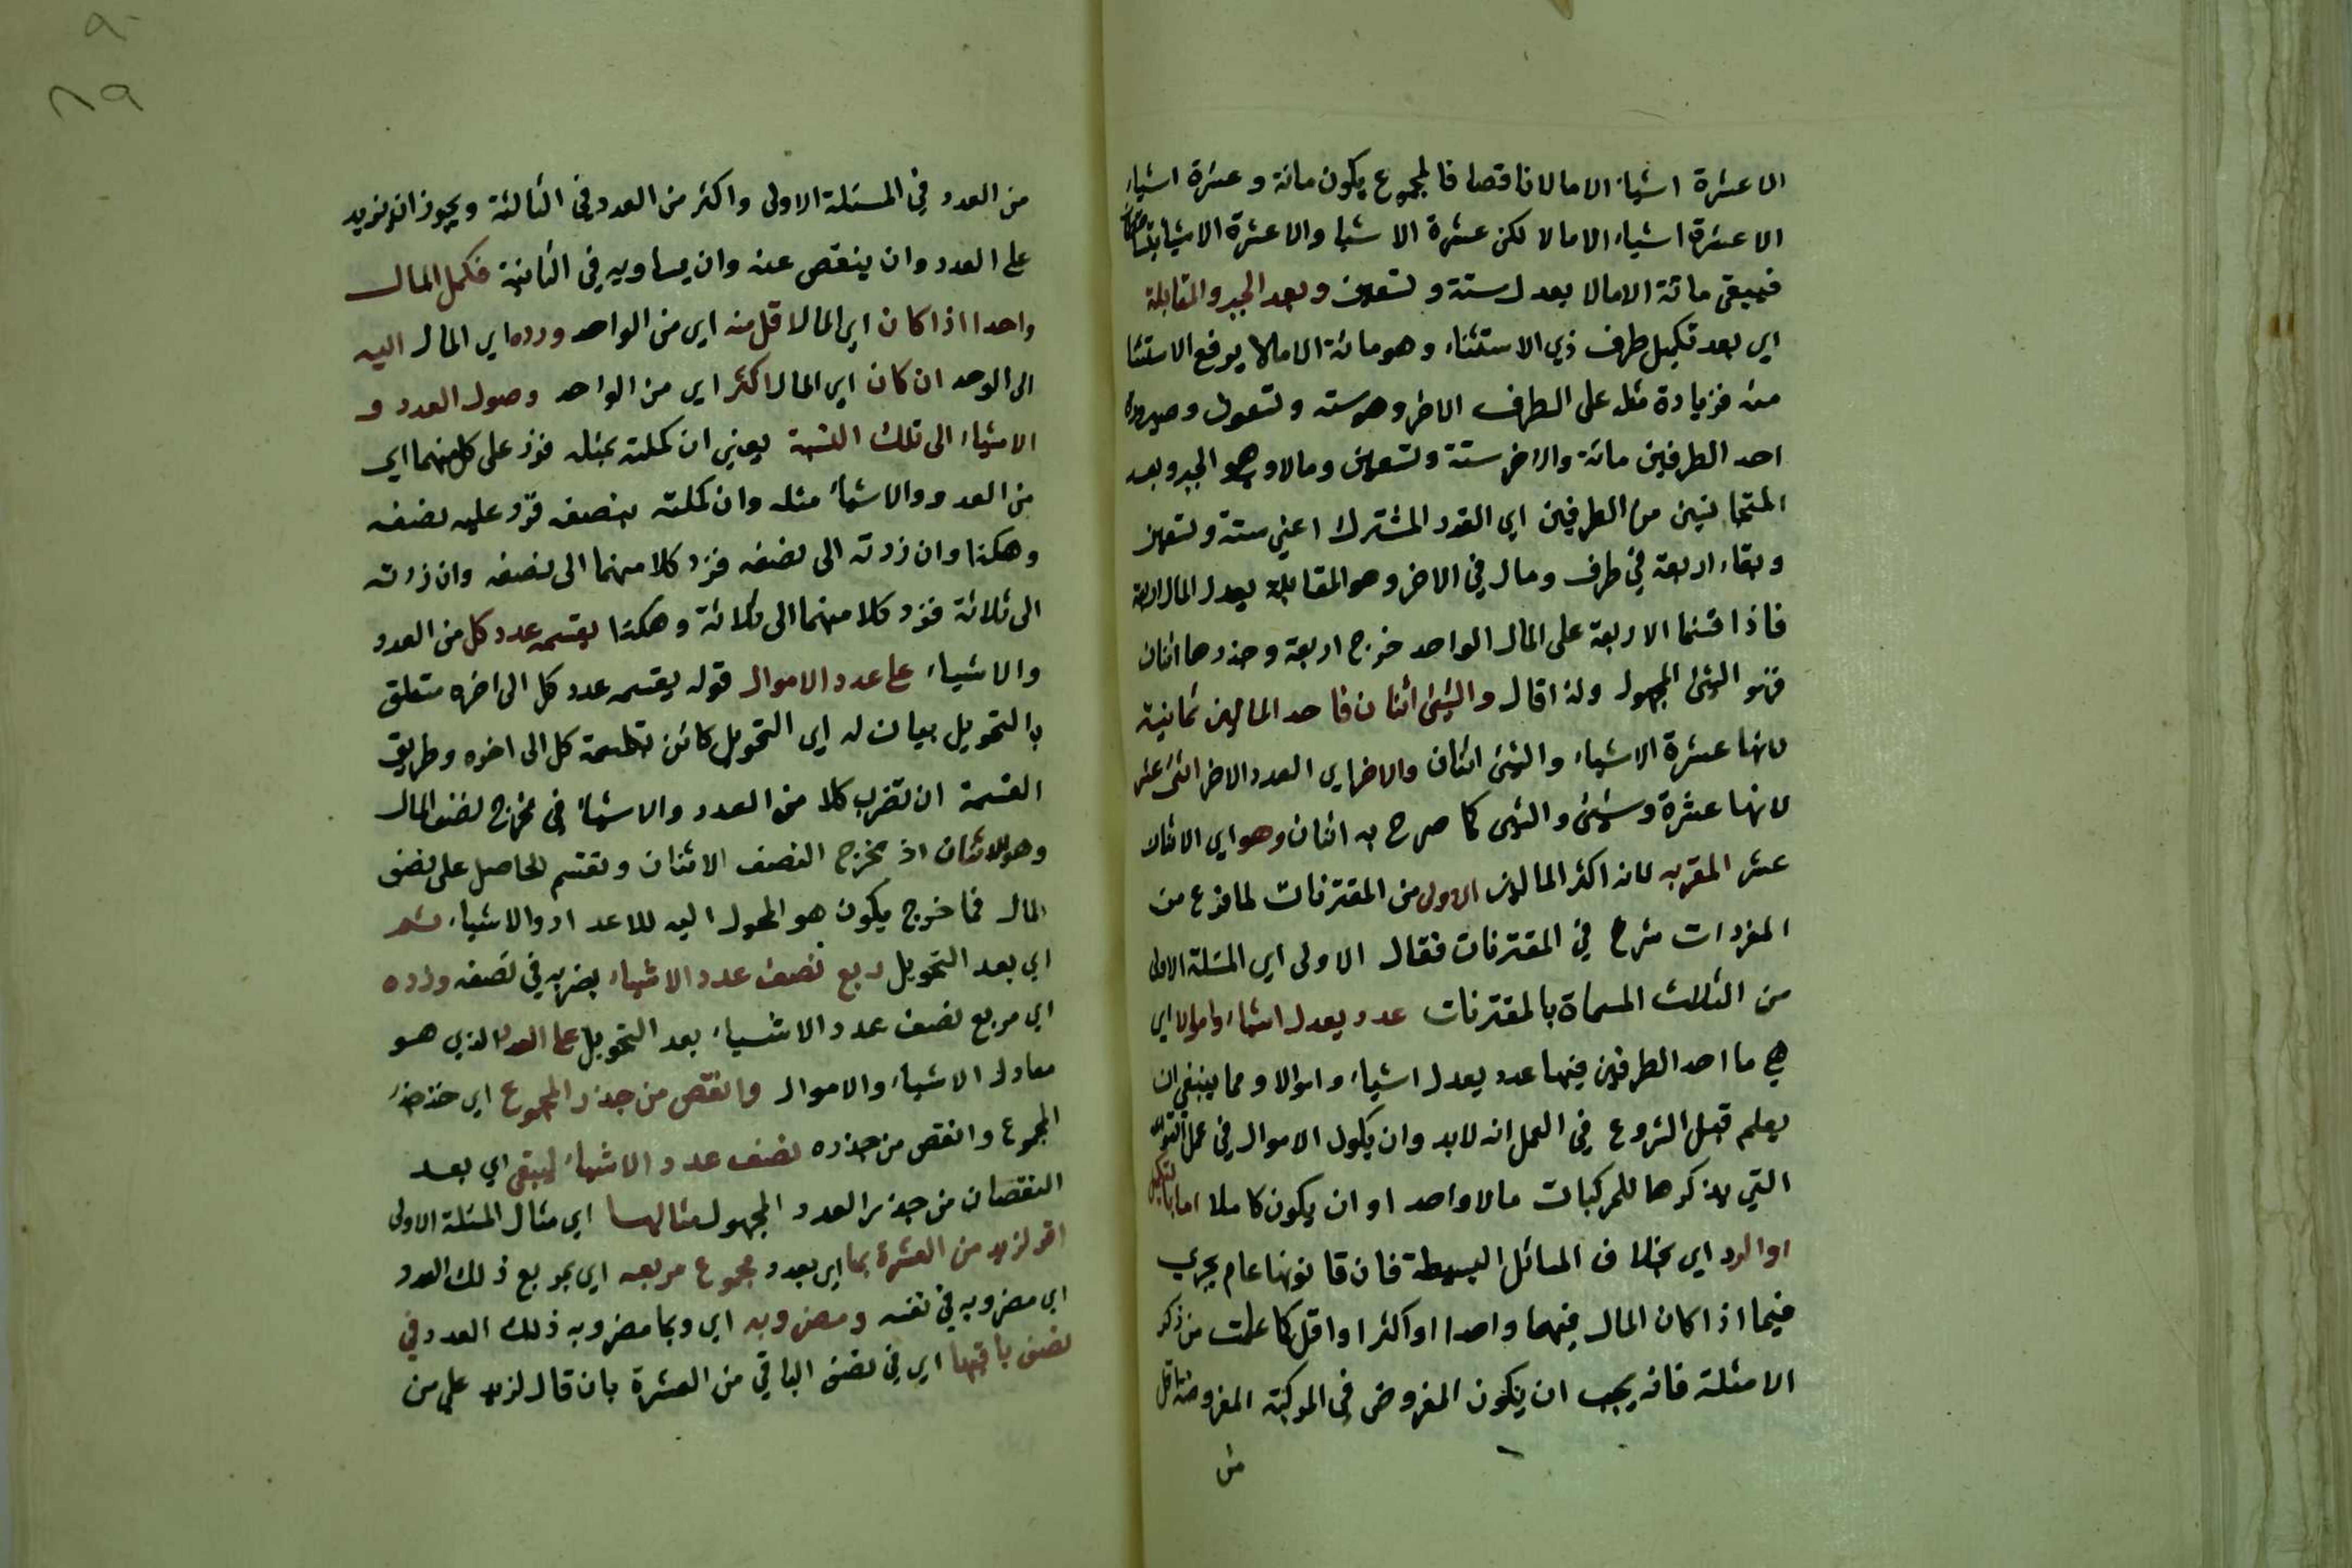 الا عشرة اشياء الا مالا ناقصا فالمجموع يكون مائة وعشرة اشياء
الا عشرة اشياء الا مالا لكن عشرة الاشيا والا عشرة الاشيا
فيبقى مائة الا مالا يعدل ستة وتسعين وبعد الجبر والمقابلة
اي بعد تكميل طرف ذي الاستثناء وهو مائة الا مالا يرفع الاستثنا
منه فزيادة مثله على الطرف الاخر وهو ستة وتسعون وصيرورة
احد الطرفين مائة والاخر ستة وتسعين ومالا وهو الجبر وبعد
المتجانسين من الطرفين اي القدر المشترك اعني ستة وتسعين
وبقاء اربعة في طرف ومال في الاخر وهو المقابلة يعدل المال اربعة
فاذا قسنما الاربعة على المال الواحد خرج اربعة وجذرها اثنان
فهو الشئ المجهول ولذا قال والشئ اثنان فاحد المالين ثمانية
لانها عشرة الا شيا والشئ اثنان والاخر اي العدد الاخر اثنى عشر
لانها عشرة وشئ والشئ كما صرح به اثنان وهو اي الاثنان
عشر المقر به لانه اكثر المالين الاولى من المقترنات لما فرغ من
المفردات شرع في المقترنات فقال الاولى اي المسئلة الاولى
من الثلاث المسماة بالمقترنات عدد يعدل اشياء واموالا اي
هي ما احد الطرفين فيها عدد يعدل اشياء واموالا ومما ينبغي ان
يعلم قبل الشروع في العمل انه لابد وان يكون الاموال في عمل
التي يذكرها للمركبات مالا واحد او ان يكون كاملا اما بالتكميل
او الرد اي بخلاف المسائل البسيطة فان قانونها عام يجري
فيما اذا كان المال فيهما واحدا او اكثر او اقل كما علمت من ذكر
الامثلة فانه يجب ان يكون المفروض في المركبة المفروضة اقل
من
٩٠
٨٩
من العدد في المسئلة الاولى واكثر من العدد في الثالثة ويجوز ان يزيد
على العدد وان ينقص عنه وان يساويه في الثانية فكمل المال
واحدا اذا كان اي المال اقل منه اي من الواحد ورده اي المال اليه
الى الوحد ان كان اي المال اكثر اي من الواحد وحول العدد و
الاشياء الى تلك النسبة يعني ان كملته بمثله فزد على كل منهما اي
من العدد والاشياء مثله وان كملته بنصفه فزد عليه نصفه
وهكذا وان رددته الى نصفه فرد كلا منهما الى نصفه وان رددته
الى ثلاثة فرد كلا منهما الى ثلاثة وهكذا بقسمه عدد كل من العدد
والاشياء على عدد الاموال قوله بقسمه عدد كل الى اخره متعلق
بالتحويل بيان له اي التحويل كائن بقسمة كل الى اخره وطريق
القسمة ان تضرب كلا من العدد والاشياء في مخرج نصف المال
وهو الاثنان اذ مخرج النصف الاثنان وتقسم الحاصل على نصف
المال فما خرج يكون هو المحول اليه للاعداد والاشياء ثم
اي بعد التحويل ربع نصف عدد الاشياء بضربه في نصفه وزده
اي مربع نصف عدد الاشياء بعد التحويل على العدد الذي هو
معادل الاشياء والاموال وانقص من جذر المجموع اي خذ جذر
المجموع وانقص من جذره نصف عدد الاشياء ليبقى اي بعد
النقصان من جذر العدد المجهول مثالها اي مثال المسئلة الاولى
اقر لزيد من العشرة بما اي بعدد مجموع مربعه اي بمربع ذلك العدد
اي مضروبه في نفسه ومضروبه اي وبما مضروبه ذلك العدد في
نصف باقيها اي في نصف الباقي من العشرة بان قال لزيد علي من